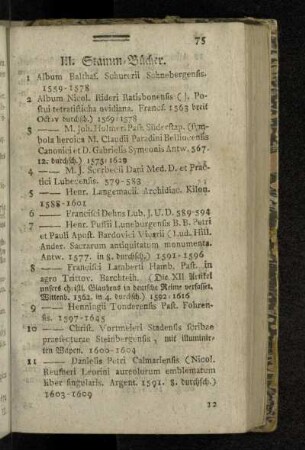 75
III. Stamm-Bücher.
1 Album Balthas. Schurerii Schnebergensis.
1559-1578
2 Album Nicol. Rideri Ratisbonensis (J. Postui tetrastischa ovidiana. Francf. 1563 breit
Octav durchsch.) 1569-1578
3 — M. Joh. Past. Süderstap. (symbola heroica M. Claudii Paradini Bellincensis
Canonici et D. Gabrielis Symeonis Antw. 567.
12. durchsch.) 1575-1628
4 — M. J. Scerbecii Dani Med. D. et Practici Lubecensis. 579-583
5 — Henr. Langemacii. Archidiac. Kilon.
1588-1601
6 — Francisci Dehns Lub. J. U. D. 589-594
7 — Henr. Pussii Luneburgensis B. B. Petri
et Pauli Apost. Bardovici Vicarii (Lub. Hill.
Ander. Sacrarum antiquitatum monumenta.
Antw. 1577. in 8. durchsch.) 1591-1596
8 — Francisci Lamberti Hamb. Past. in
agro Trittov. Berchteih. (Die XII Artikel
unsers christl. Glaubens in deutsche Reime verfasset.
Wittenb. 1562. in 4. durchsch.) 1592-1616
9 — Henningii Tonderensis Past. Fohrensis. 1597-1645
10 — Christ. Vortmeieri Stadensis scribae
praefecturae Steinbergensis, mit illuminirten Wapen. 1600-1604
11 — Danielis Petri Calmariensis (Nicol.
Reusneri Leorini aureolorum emblematum
liber singularis. Argent. 1591. 8. durchsch.)
1603-1609
12